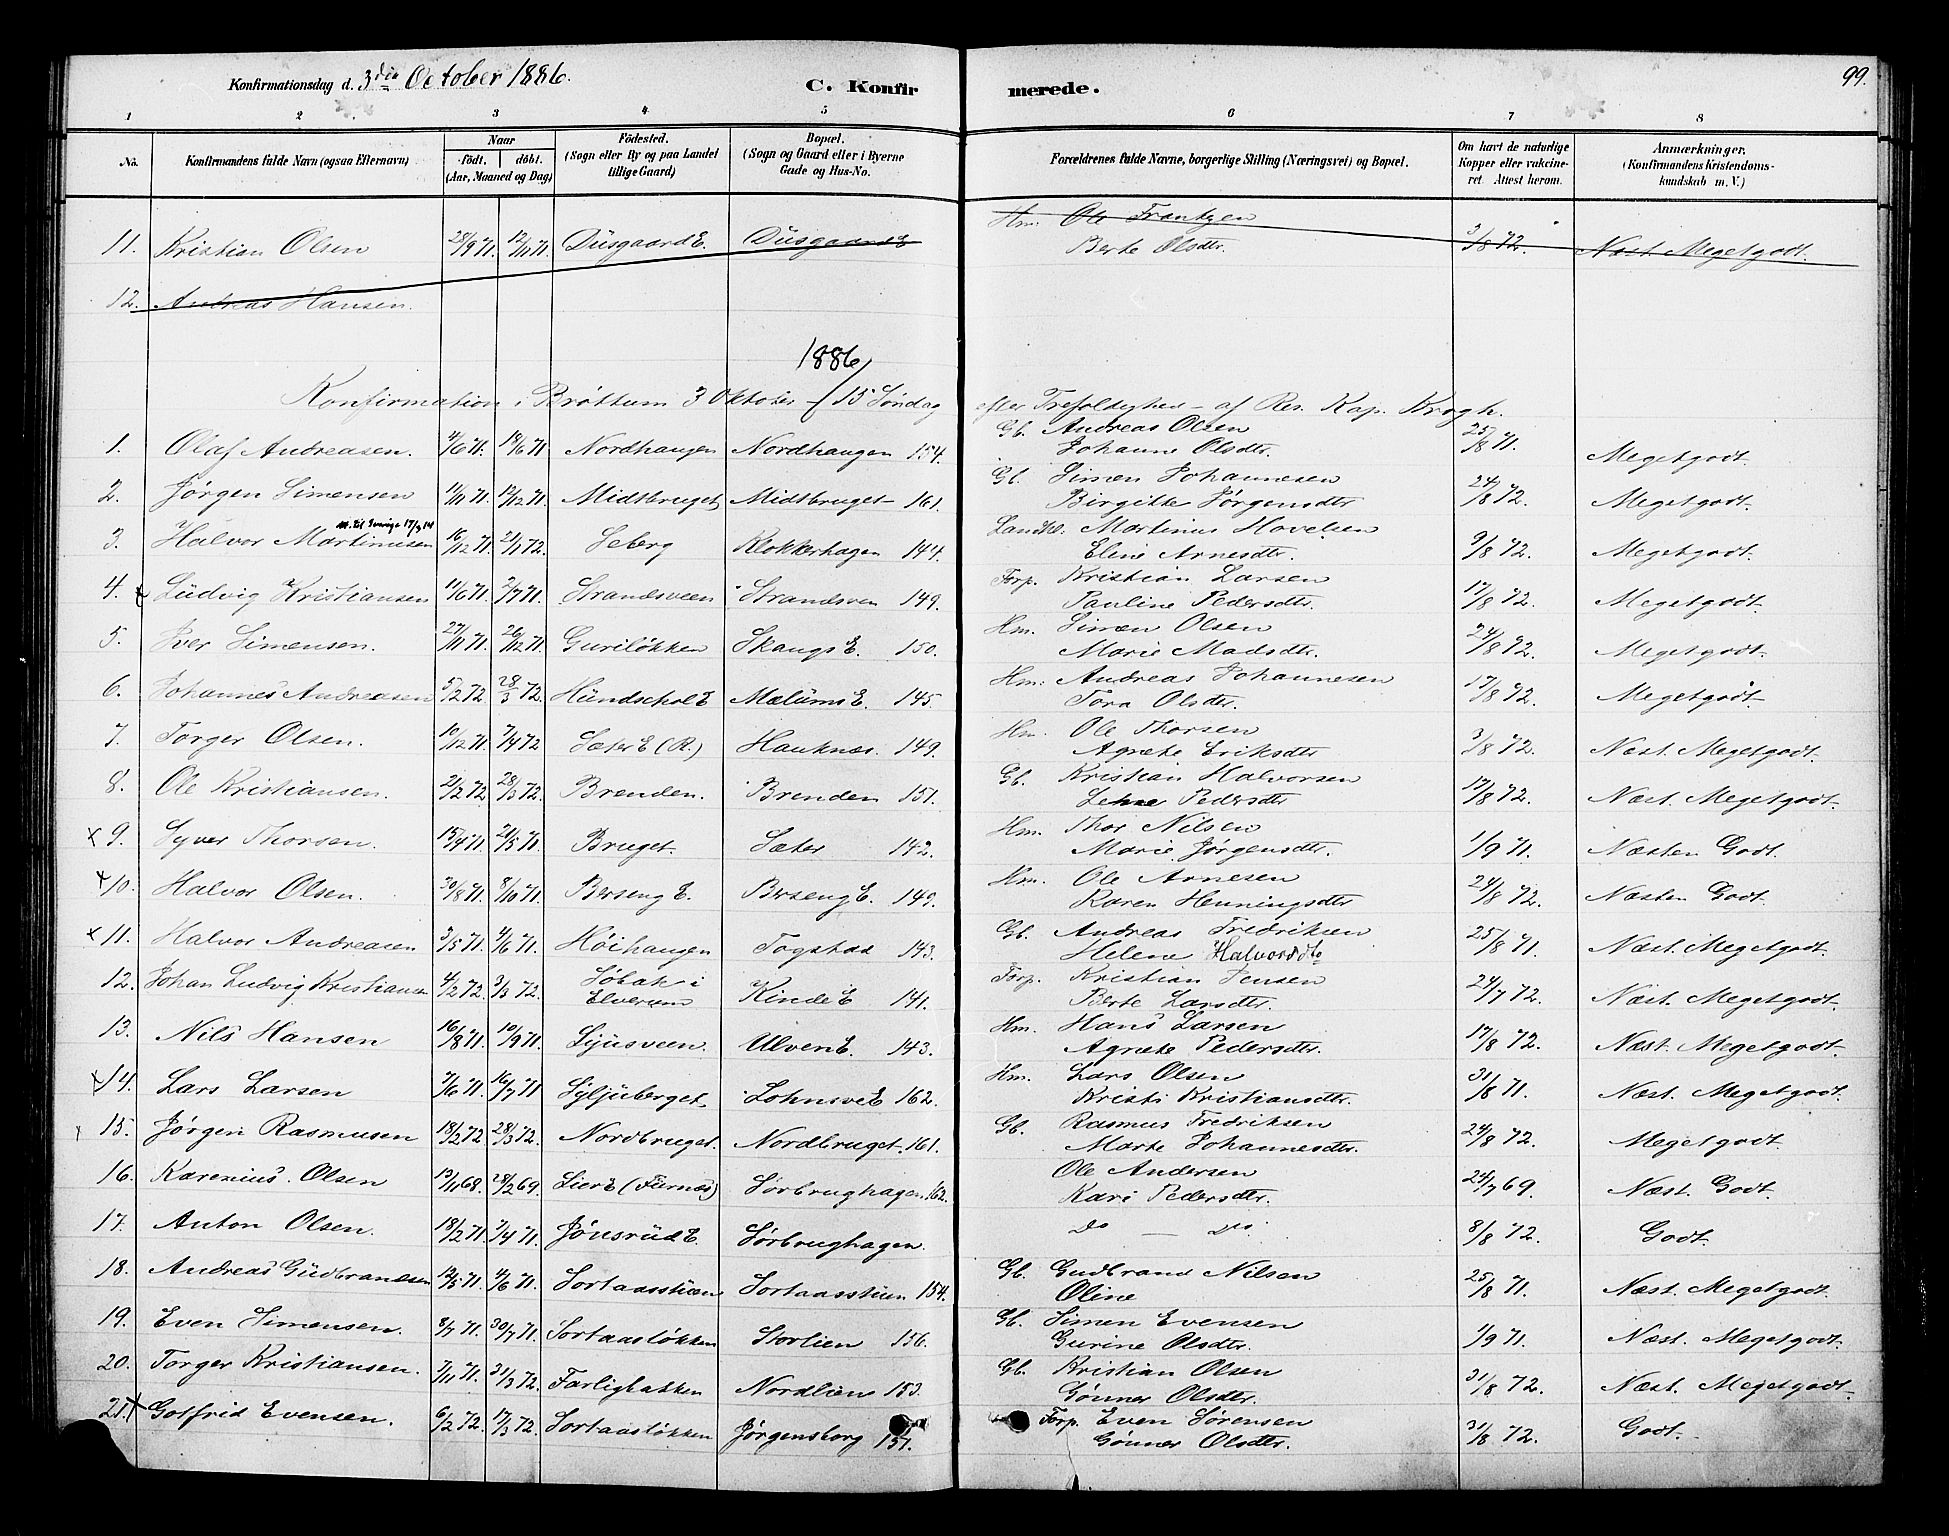 Konfirmationsdag d. 3die October 1886.
C. Konfirmerede.
99.
1 2 3 4 5 6 7 8
No. Konfirmandens fulde Navn (ogsaa Efternavn) Naar födt. döbt. (Aar, Maaned og Dag) Födested. (Sogn eller By og paa Landet tillige Gaard) Bopæl. (Sogn og Gaard eller i Byerne Gade og Hus-No. Forældrenes fulde Navne, borgerlige Stilling (Næringsvei) og Bopæl. Om havt de naturlige Kopper eller vakcineret. Attest herom. Anmærkninger, (Konfirmandens Kristendomskundskab m. V.)
11. Kristian Olsen 28/9 71. 12/11 71. Dusgaard E. Dusgaard E Hm. Ole Frantzen
Berte Olsdtr. 3/8 72. Næst. Megetgodt.
12. Andreas Hansen.
1886
Konfirmation i Bröttum 3 Oktober - (15 Söndag efter Trefoldighed - af Res. Kap. Krogh.
1. Olaf Andreasen. 4/6 71. 18/6 71 Nordhaugen Nordhaugen 154. Gb. Andreas Olsen
Johanne Olsdtr. 25/8 71. Megetgodt.
2. Jörgen Simensen 11/11 71. 12/12 71. Midtbruget Midtbruget 161. Gb. Simen Johannesen
Birgitte Jörgensdtr 24/8 72. Megetgodt.
3. Halvor Martinusen m. til Sverige 17/3 14 16/12 71. 21/1 72. Seberg Klokkerhagen 144. Landh. Martinus Hovelsen
Eline Arnesdtr. 9/8 72. Megetgodt.
4. x Ludvig Kristiansen 11/6 71. 2/7 71. Strandsveen Strandsven 149. Torp. Kristian Larsen
Pauline Pedersdtr. 17/8 72. Megetgodt.
5. Iver Simensen. 27/11 71. 26/12 71. Guriløkken Skaugs E. 150. Hm. Simen Olsen
Marie Madsdtr. 24/8 72. Megetgodt.
6. Johannes Andreasen 5/2 72 28/3 72. Hundschol E Mælums E. 145. Hm. Andreas Johannesen
Tora Olsdtr. 17/8 72. Megetgodt
7. Torger Olsen. 10/12 71. 7/4 72 Sæter E (R.) Hauknæs. 149. Hm. Ole Thorsen
Agnete Eriksdtr 3/8 72. Næst. Megetgodt.
8. Ole Kristiansen. 21/2 72 28/3 72. Brenden. Brenden 151. Gb. Kristian Halvorsen
Lene Pedersdtr 17/8 72. Næst. Megetgodt.
x 9. Syver Thorsen. 15/4 71. 21/5 71. Bruget. Sæter 142. Hm. Thor Nilsen
Marie Jörgensdtr. 1/9 71. Næsten Godt.
x 10. Halvor Olsen. 30/8 71. 8/10 71. Berseng E. Berseng E. 149. Hm. Ole Arnesen
Karen Henningsdtr 24/8 72. Næsten Godt.
x 11. Halvor Andreasen 3/5 71. 4/6 71. Höihaugen Togstad 143. Gb. Andreas Fredriksen
Helene Halvorsdtr 25/8 71. Næst. Megetgodt.
12. Johan Ludvig Kristiansen 4/2 72. 3/3 72. Söbak i Elverum Kinde E 141. Torp. Kristian Jensen
Berte Larsdtr. 24/7 72. Næst. Megetgodt.
13. Nils Hansen 16/8 71. 10/9 71. Ljusveen. Ulven E. 143. Hm. Hans Larsen
Agnete Pedersdtr. 17/8 72. Næst. Megetgodt.
x 14. Lars Larsen 7/6 71. 16/7 71 Syljuberget Lohnsve E 162. Hm. Lars Olsen
Kristi Kristiansdtr. 31/8 71. Næst. Megetgodt.
x 15. Jörgen Rasmusen 18/2 72 28/3 72. Nordbruget. Nordbruget. 161. Gb. Rasmus Fredriksen
Marte Johannesdtr. 24/8 72. Megetgodt
16. Karenius Olsen 13/11 68. 28/2 69. Lier E (Furnæs) Sörbrughagen 162. Ole Andersen
Kari Pedersdtr. 24/7 69. Næst. Godt.
17. Anton Olsen. 18/2 71. 7/4 71. Jönsrud E. Sörbrughagen. Do — Do. 8/8 72. Godt.
18. Andreas Gudbrandsen 12/5 71. 4/6 71. Sortaasstuen Sortaasstuen 154. Gb. Gudbrand Nilsen
Oline 25/8 71. Næst. Megetgodt.
19. Even Simensen. 8/7 71. 30/7 71. Sortaasløkken Storlien 156. Gb. Simen Evensen
Gurine Olsdtr. 1/9 71. Næst. Megetgodt.
20. Torger Kristiansen. 7/11 71. 31/3 72. Farligbakken Nordlien 153. Gb. Kristian Olsen
Gönner Olsdtr. 31/8 72. Næst. Megetgodt.
21. x Gotfrid Evensen. 6/2 72. 17/3 72. Sortaasløkken Jörgensborg 157. Torp. Even Sörensen
Gönner Olsdtr. 31/8 72. Godt.